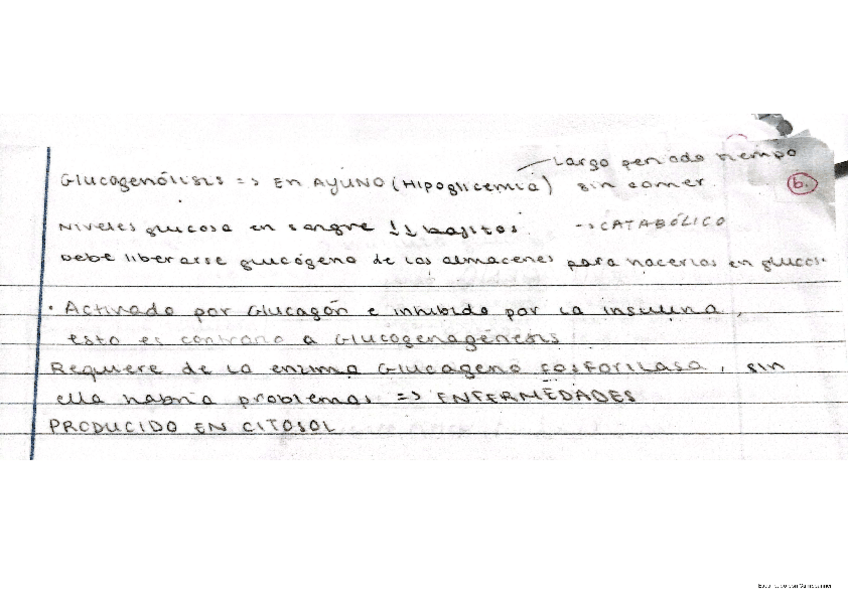 Largo periodo tiempo
Glucogenólisis => EN AYUNO (Hipoglicemia) sin comer. b.
Niveles glucosa en sangre ↓↓ bajitos. -> CATABÓLICO
Debe liberarse glucógeno de los almacenes para hacerlos en glucos.
· Activado por Glucagón e inhibido por la insulina,
esto es contrario a Glucogenagénesis
Requiere de la enzima Glucógeno fosforilasa, sin
ella habría problemas => ENFERMEDADES
PRODUCIDO EN CITOSOL